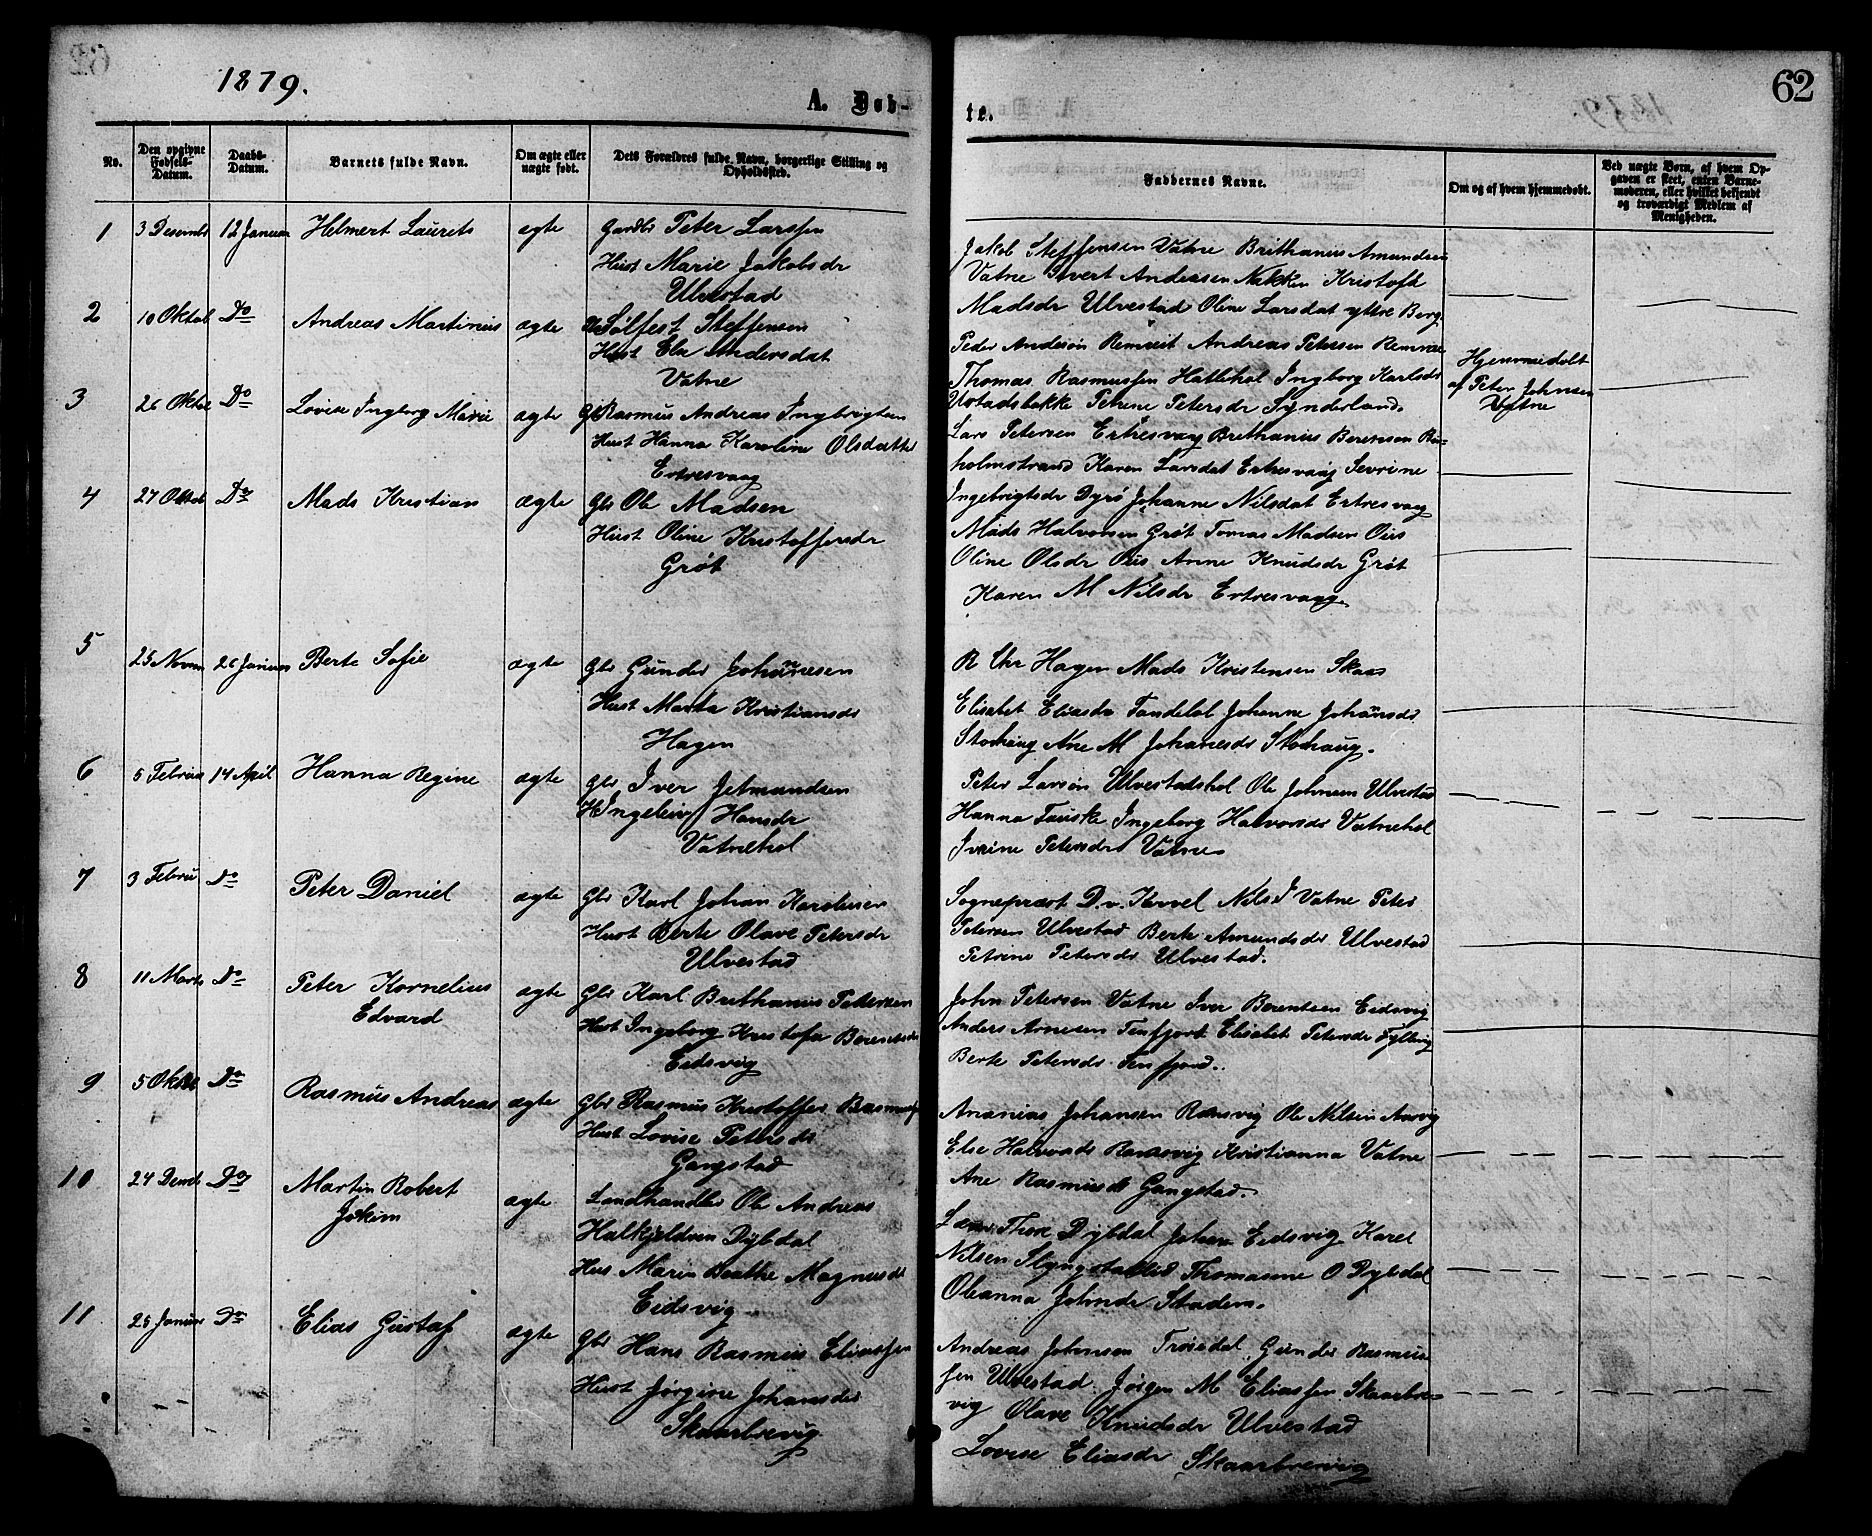 1879.
A. Døb-
No.
Den opgivne Fødsels-Datum.
Daabs-Datum.
Barnets fulde Navn.
Om ægte eller uægte født.
Dets Forældres fulde Navn, borgerlige Stilling og Opholdssted.
1 3 Desembr 12 Januar Helmert Laurits ægte Gardbr Peter Larssen
Hust Marie Jakobsdr
Ulvestad
2 10 Oktob Do Andreas Martinus ægte Sølfest Steffensen
Hust Ele Andersdat
Vatne
3 26 Oktob Do Lovise Ingborg Marie ægte Gbr Rasmus Andreas Ingbrigtsen
Hust Hanna Karoline Olsdatter
Ertresvaag
4 27 Oktob Do Mads Kristian ægte Gbr Ole Madsen
Hust Oline Kristoffersdr
Grøt
5 25 Novem 26 Januar Berte Sofie ægte Gbr Gunder Johannesen
Hust Marta Kristiansdr
Hagen
6 5 Februar 14 April Hanna Regine ægte Gbr Iver Jetmundsen
H Ingeleiv Hansdr
Vatnehol
7 3 Febru Do Peter Daniel ægte Gbr Karl Johan Karolusen
Hust Berte Olave Petersdr
Ulvestad
8 11 Marts Do Peter Kornelius
Edvard
ægte Gbr Karl Brithanius Pettersen
Hust Ingeborg Kristofa Berentsdr
Eidsvig
9 5 Oktob Do Rasmus Andreas ægte Gbr Rasmus Kristoffer Rasmuss
Hust Lovise Petersdr
Gangstad
10 24 Desmb Do Martin Robert
Jokim
ægte Landhandler Ole Andreas
Halkjeldsen Dybdal
Hus Marin Beathe Magnusdr
Eidsvig
11 25 Januar Do Elias Gustaf ægte Gbr Hans Rasmus Eliassen
Hust Jørgine Johansdr
Skaarbrevig
62
te.
Faddernes Navne.
Om og af hvem hjemmedøbt.
Ved uægte Børn, af hvem Opgaven er skeet, enten Barnemoderen, eller hvilket bekjendt og troværdigt Medlem af Menigheden.
Jakob Steffensen Vatne Brithanius Amundsen
Vatne Sivert Andersen Nakken Kristofa
Madsdr Ulvestad Oline Larsdat yttre Borg
Peder Anderson Remvik Andreas Petersen Remvik
Thomas Rasmussen Hattehol Ingborg Karlsdr
Ustadsbakke Petrine Petersdr Synderland.
Hjemmedøbt
af Peter Johnsen
Vatne
Lars Petersen Ertresvaag Brithanius Berenson
holmstrand Karen Larsdat Ertresvaag Sevrine
Ingebrigtsdr Dyrø Johanne Nilsdat Ertresvaag
Mads Halvorsen Grøt Tomas Madsen Ous
Oline Olsdr Ous Anne Knudsdr Grøt
Karen M Nilsdr Ertresvaag
R Chr Hagen Mads Kristensen Skaar
Elisabet Eliasdr Johanne Johansdr
Ane M Johanesdr
Peter Larson Ulvestadhol Ole Johnsen Ulvestad
Hanna Fauske Ingeborg Halvorsdr Vatnehol
Petersdr Vatne
Sogneprest D. v. Krevel Nils J Vatne Peter
Petersen Ulvestad Berte Amundsdr Ulvestad
Petrine Petersdr Ulvestad.
John Petersen Vatne Iver Berentsen Eidsvig
Anders Arnesen Tenfjord Elisabet Petersdr Fylling
Berte Petersdr Tenfjord.
Ananias Johansen Ramsvig Ole Nilsen Aasvig
Else Halvorsdr Ramsvig Kristianna Vatne
Ane Rasmusdr Gangstad.
Thore Dybdal Johan Eidsvig Karel
Nilsen Slyngstadlid Thomasine O Dybdal
Oleanna Johnsdr Staden.
Andreas Johnson Gunder Rasmus
sen Ulvestad. Jørgen M Eliassen Skaarbre-
vig Olave Knudsdr Ulvestad
Lovise Eliasdr Skaarbrevig